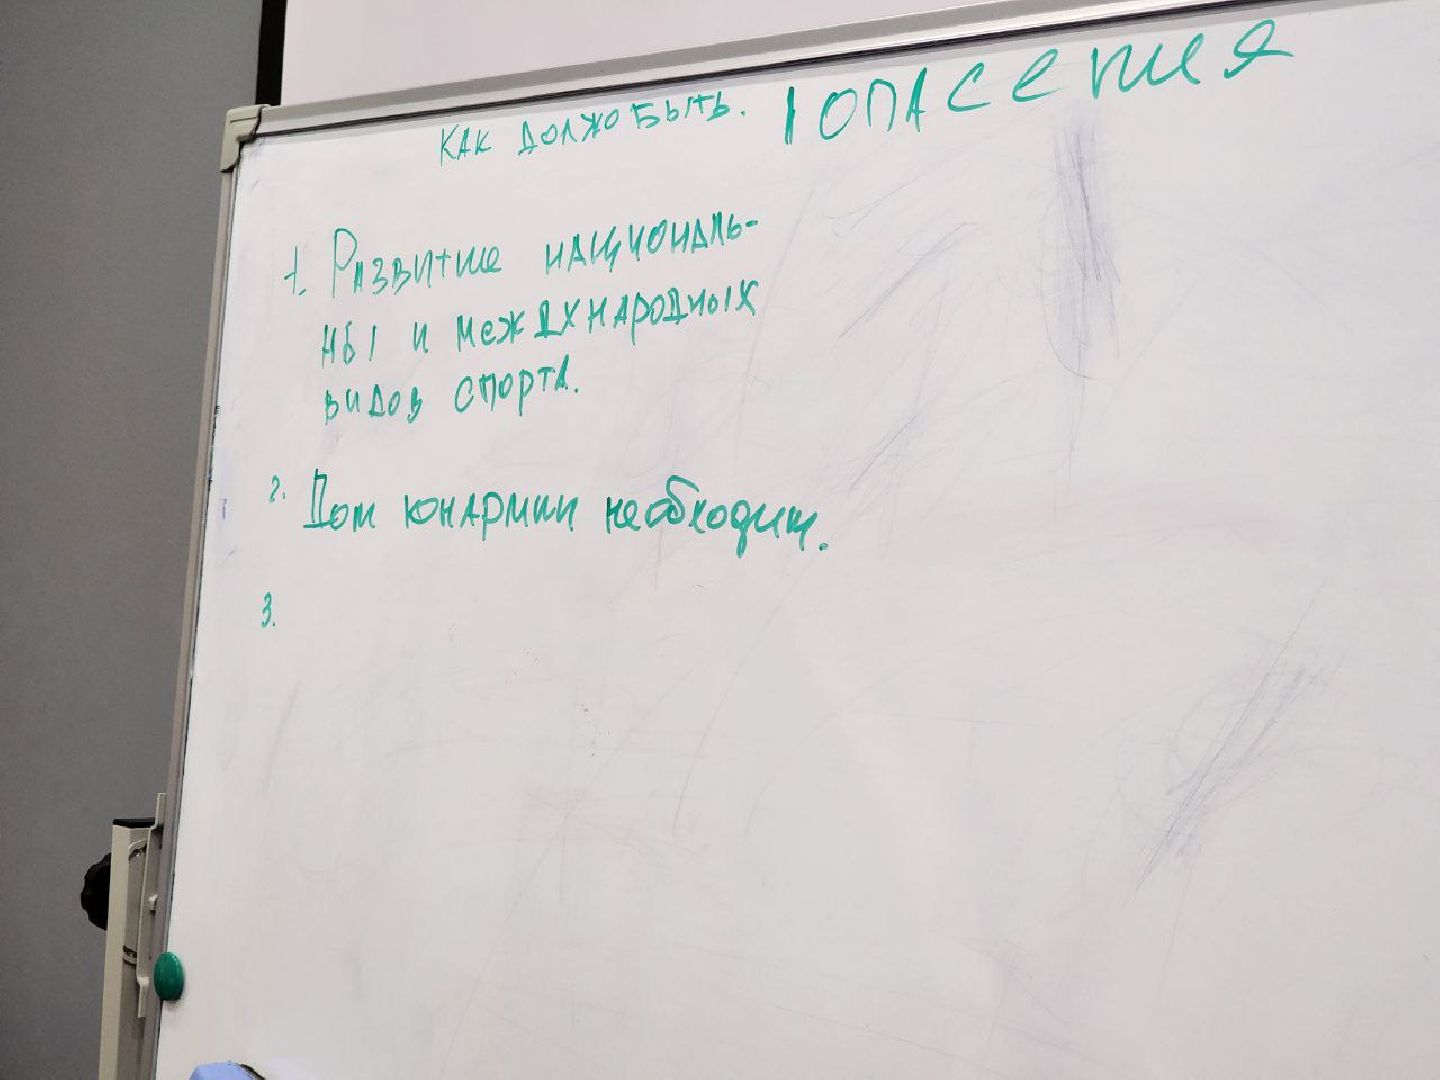 КАК ДОЛЖО БЫТЬ. | ОПАСЕНИЯ
1. РАЗВИТИЕ НАЦИОНАЛЬ-
НЫ И МЕЖДХНАРОДНЫХ
ВИДОВ СПОРТА.
2. Дом юнармии необходим.
3.